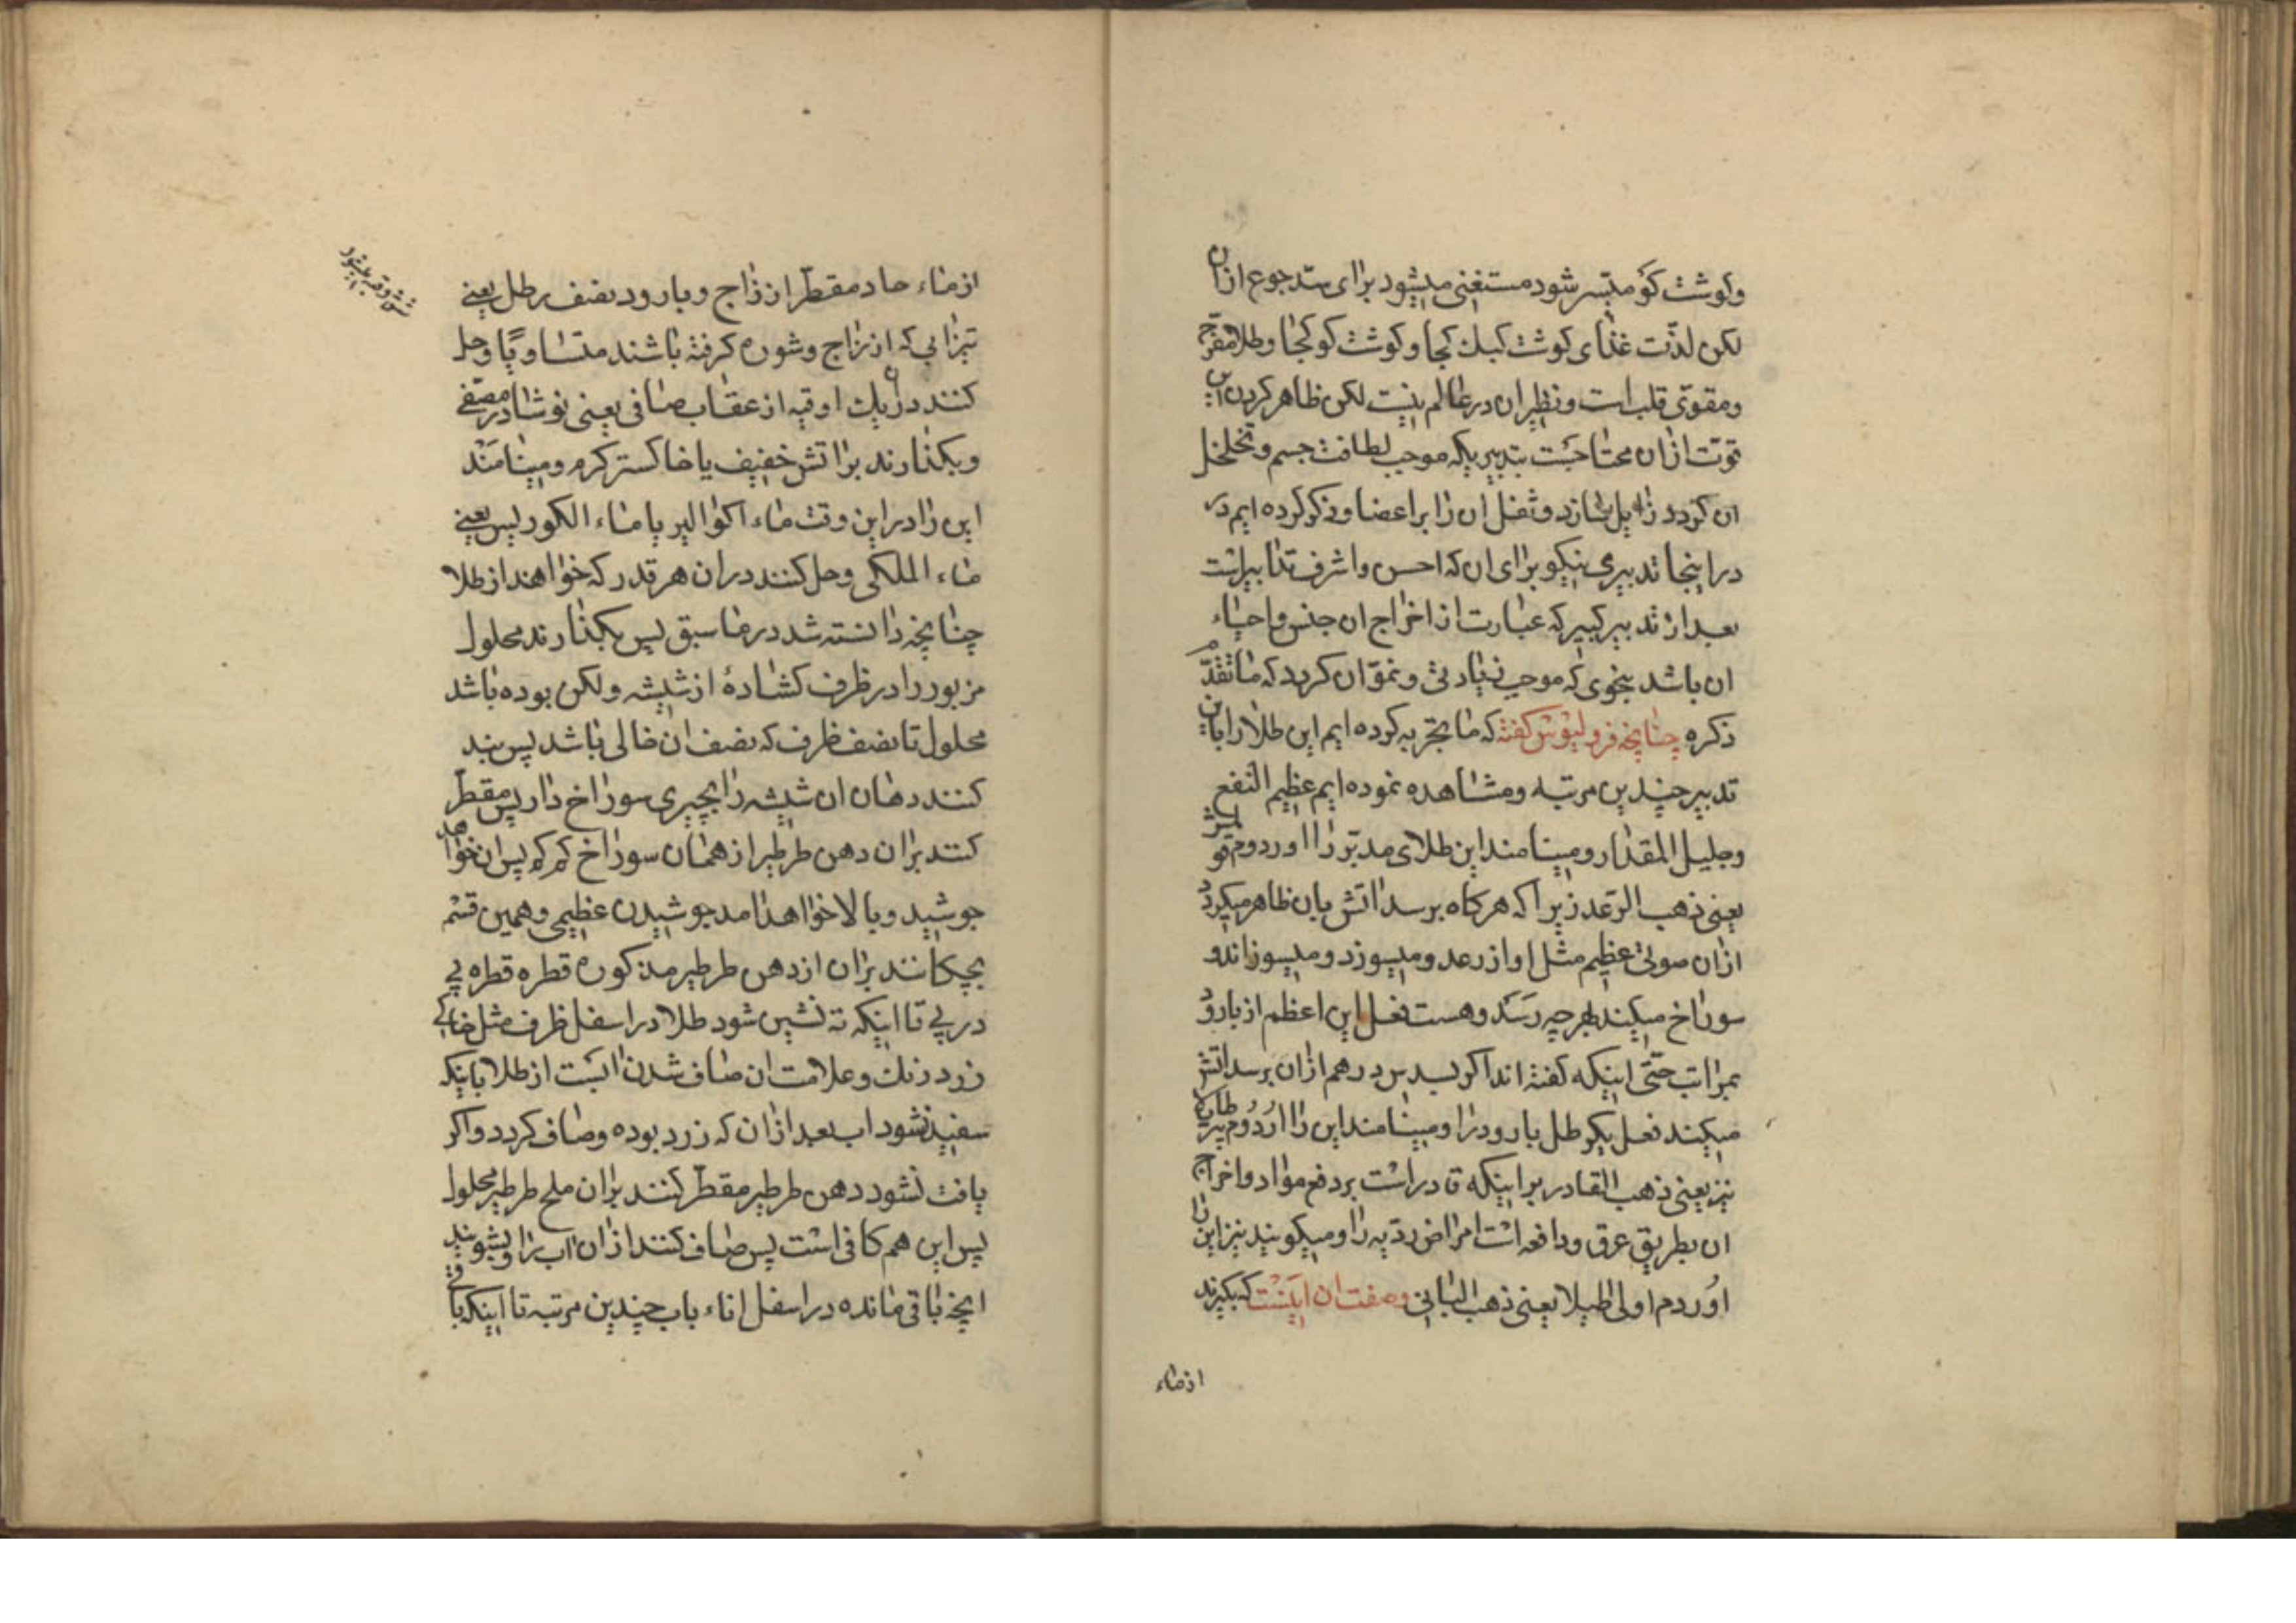 وکوشت کو میسر شود مستغنی میشود برای سد جوع ازان
لکن لذت غذای کوشت کبك کجا و کوشت کو کجا وطلا مفرح
ومقوی قلب است ونظیر ان در عالم نیست لکن ظاهر کردن این
قوت ازان محتاجست بتدبیریکه موجب لطافت جسم وتخلخل
ان کردد زایل سازد وثقل ان را بر اعضا وذکر کرده ایم در
در اینجا تدبیری نیکو برای ان که احسن واشرف تدابیر است
بعد از تدبیر کبیر که عبارت از اخراج ان جنس واحیاء
ان باشد بنحوی که موجب زیادتی ونمو ان کردد که ما تقدم
ذکره چنانچه فرولیوس کفته که ما تجربه کرده ایم این طلا را باین
تدبیر چندین مرتبه ومشاهده نموده ایم عظیم النفع
وجلیل المقدار ومینامند این طلای مدبر را اوردوم
یعنی ذهب الرعد زیرا که هر کاه برسد اتش بان ظاهر میکردد
ازان صوتی عظیم مثل اواز رعد ومیسوزد ومیسوزاند و
سوراخ میکند بهر چه رسد وهست فعل این اعظم از بارود
بمراتب حتی اینکه کفته اند اکر بسدس درهم ازان برسد اتش
میکند فعل یکرطل بارود را ومینامند این را اوردوم
نیز یعنی ذهب القادر بر اینکه قادر است بر دفع مواد واخراج
ان بطریق عرق ودافعه است امراض ردیه را ومیکویند نیز این را
اوردم اولی طیلا یعنی ذهب النباتی وصفت ان اینست که بکیرند
از ماء
از ماء حاد مقطر از زاج وبارود نصف رطل یعنی
تیزابی که از زاج وشوره کرفته باشند متساویا وحل
کنند دران یك اوقیه از عقاب صافی یعنی نوشادر مصفی
وبکذارند بر اتش خفیف یا خاکستر کرم ومینامند
این را در این وقت ماء اکوالیر یا ماء الکورلیس یعنی
ماء الملکی وحل کنند دران هر قدر که خواهند از طلا
چنانچه دانسته شد در ما سبق پس بکذارند محلول
مزبور را در ظرف کشادهٔ از شیشه ولکن بوده باشد
محلول تا نصف ظرف که نصف ان خالی باشد پس بند
کنند دهان ان شیشه را بچیزی سوراخ دار پس مقطر
کنند بران دهن طرطیر از همان سوراخ کم کم پس ان خواهد
جوشید وبالا خواهد امد جوشیدن عظیمی وهمین قسم
بچکانند بران از دهن طرطیر مذکوره قطره قطره پی
در پی تا اینکه ته نشین شود طلا در اسفل ظرف مثل خاکی
زرد رنك وعلامت ان صاف شدن ابست از طلا باینکه
سفید شود اب بعد ازان که زرد بوده وصاف کردد واکر
یافت نشود دهن طرطیر مقطر کنند بران ملح طرطیر محلول
پس این هم کافی است پس صاف کنند ازان اب را وبشویند
انچه باقی مانده در اسفل اناء باب چندین مرتبه تا اینکه باقی